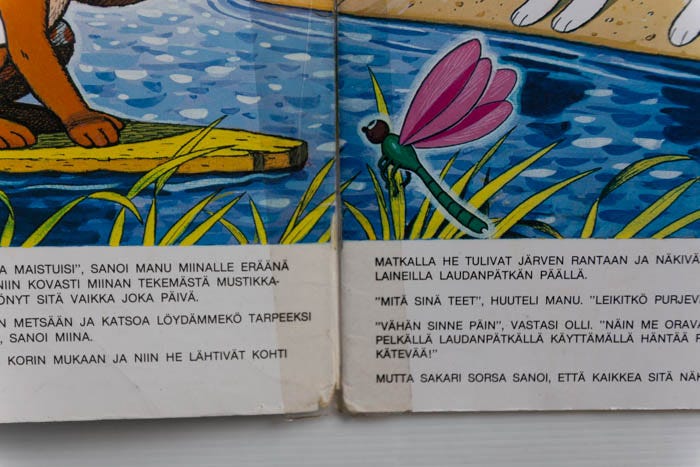 A MAISTUISI", SANOI MANU MIINALLE ERÄÄNÄ
NIIN KOVASTI MIINAN TEKEMÄSTÄ MUSTIKKA-
ÖNYT SITÄ VAIKKA JOKA PÄIVÄ.
N METSÄÄN JA KATSOA LÖYDÄMMEKÖ TARPEEKSI
, SANOI MIINA.
KORIN MUKAAN JA NIIN HE LÄHTIVÄT KOHTI
MATKALLA HE TULIVAT JÄRVEN RANTAAN JA NÄKIVÄ
LAINEILLA LAUDANPÄTKÄN PÄÄLLÄ.
"MITÄ SINÄ TEET", HUUTELI MANU. "LEIKITKÖ PURJEV
"VÄHÄN SINNE PÄIN", VASTASI OLLI. "NÄIN ME ORAVA
PELKÄLLÄ LAUDANPÄTKÄLLÄ KÄYTTÄMÄLLÄ HÄNTÄÄ P
KÄTEVÄÄ!"
MUTTA SAKARI SORSA SANOI, ETTÄ KAIKKEA SITÄ NÄK